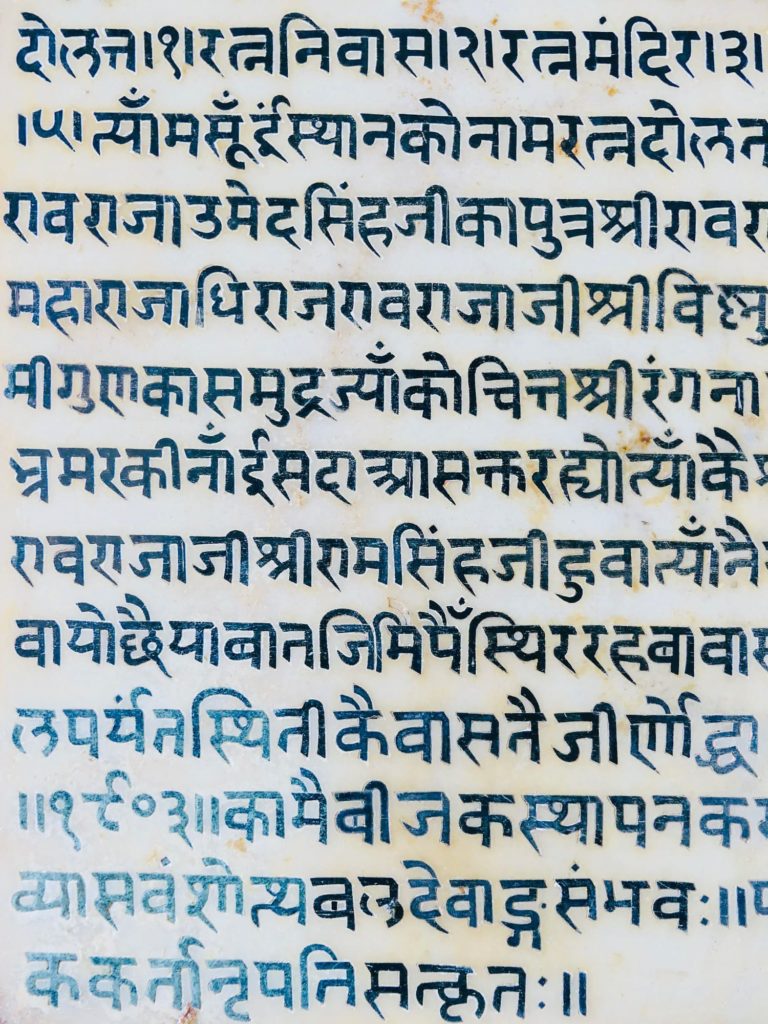 दोलत्त।१।रत्ननिवास।२।रत्नमंदिर।३।
।५।त्याँमसूँईस्थानकोनामरत्नदोलत
रावराजाउमेदसिंहजीकापुत्रश्रीराव
महाराजाधिराजरावराजाजीश्रीविष्णु
मीगुणकासमुद्रज्याँकोचित्तश्रीरंगना
भ्रमरकीनाँईसदाआसक्तरह्योत्याँकै
रावराजाजीश्रीरामसिंहजीहुवात्याँनै
वायोछैयाबातजिमिपैँस्थिररहबावास
लपर्यंतस्थितीकैवासनैजीर्णोद्धा
॥१९०३॥कामैबीजकस्थापनक
व्यासवंशोत्थबलदेवाङ्गसंभवः॥
ककर्तानृपतिसत्कृतः॥